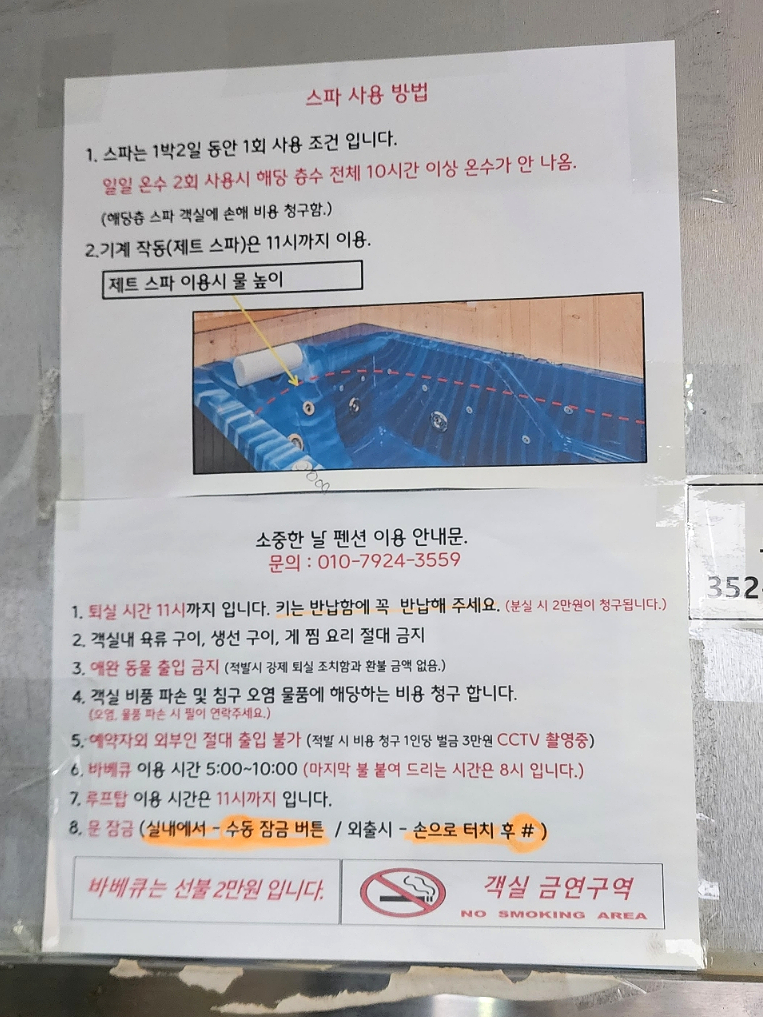 스파 사용 방법
1. 스파는 1박2일 동안 1회 사용 조건 입니다.
일일 온수 2회 사용시 해당 층수 전체 10시간 이상 온수가 안 나옴.
(해당층 스파 객실에 손해 비용 청구함.)
2.기계 작동(제트 스파)은 11시까지 이용.
제트 스파 이용시 물 높이
소중한 날 펜션 이용 안내문.
문의 : 010-7924-3559
1. 퇴실 시간 11시까지 입니다. 키는 반납함에 꼭 반납해 주세요. (분실 시 2만원이 청구됩니다.)
2. 객실내 육류 구이, 생선 구이, 게 찜 요리 절대 금지
3. 애완 동물 출입 금지 (적발시 강제 퇴실 조치함과 환불 금액 없음.)
4. 객실 비품 파손 및 침구 오염 물품에 해당하는 비용 청구 합니다.
(오염, 물품 파손 시 필이 연락주세요.)
5. 예약자외 외부인 절대 출입 불가 (적발 시 비용 청구 1인당 벌금 3만원 CCTV 촬영중)
6. 바베큐 이용 시간 5:00~10:00 (마지막 불 붙여 드리는 시간은 8시 입니다.)
7. 루프탑 이용 시간은 11시까지 입니다.
8. 문 잠금 (실내에서 - 수동 잠금 버튼 / 외출시 - 손으로 터치 후 # )
바베큐는 선불 2만원 입니다.
객실 금연구역
NO SMOKING AREA
352